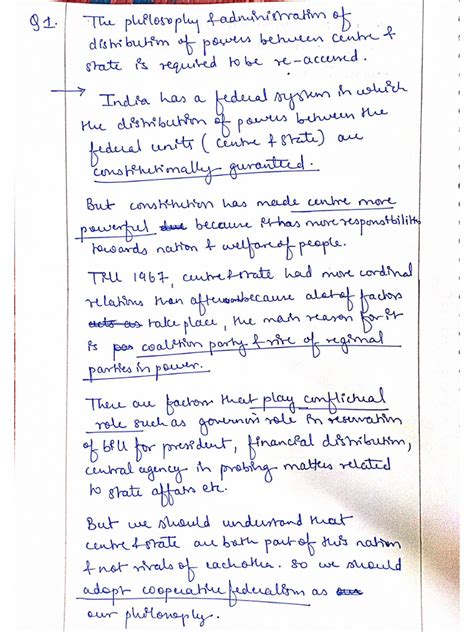 Q1. The philosophy & administration of
distribution of powers between centre &
state is required to be re-accessed.
→ India has a federal system in which
the distribution of powers between the
federal units (centre & state) are
constitutionally guranteed.
But constitution has made centre more
powerful due because it has more responsibility
towards nation & welfare of people.
Till 1967, centre & state had more cordinal
relations than after because alot of factors
acts as take place, the main reason for it
is coalition party & rise of regional
parties in power.
There are factors that play conflictual
role such as governor's role in reservation
of bill for president, financial distribution,
central agency in probing matters related
to state affairs etc.
But we should understand that
centre & state are both part of this nation
& not rivals of eachother. So we should
adopt cooperative federalism as our
our philosophy.